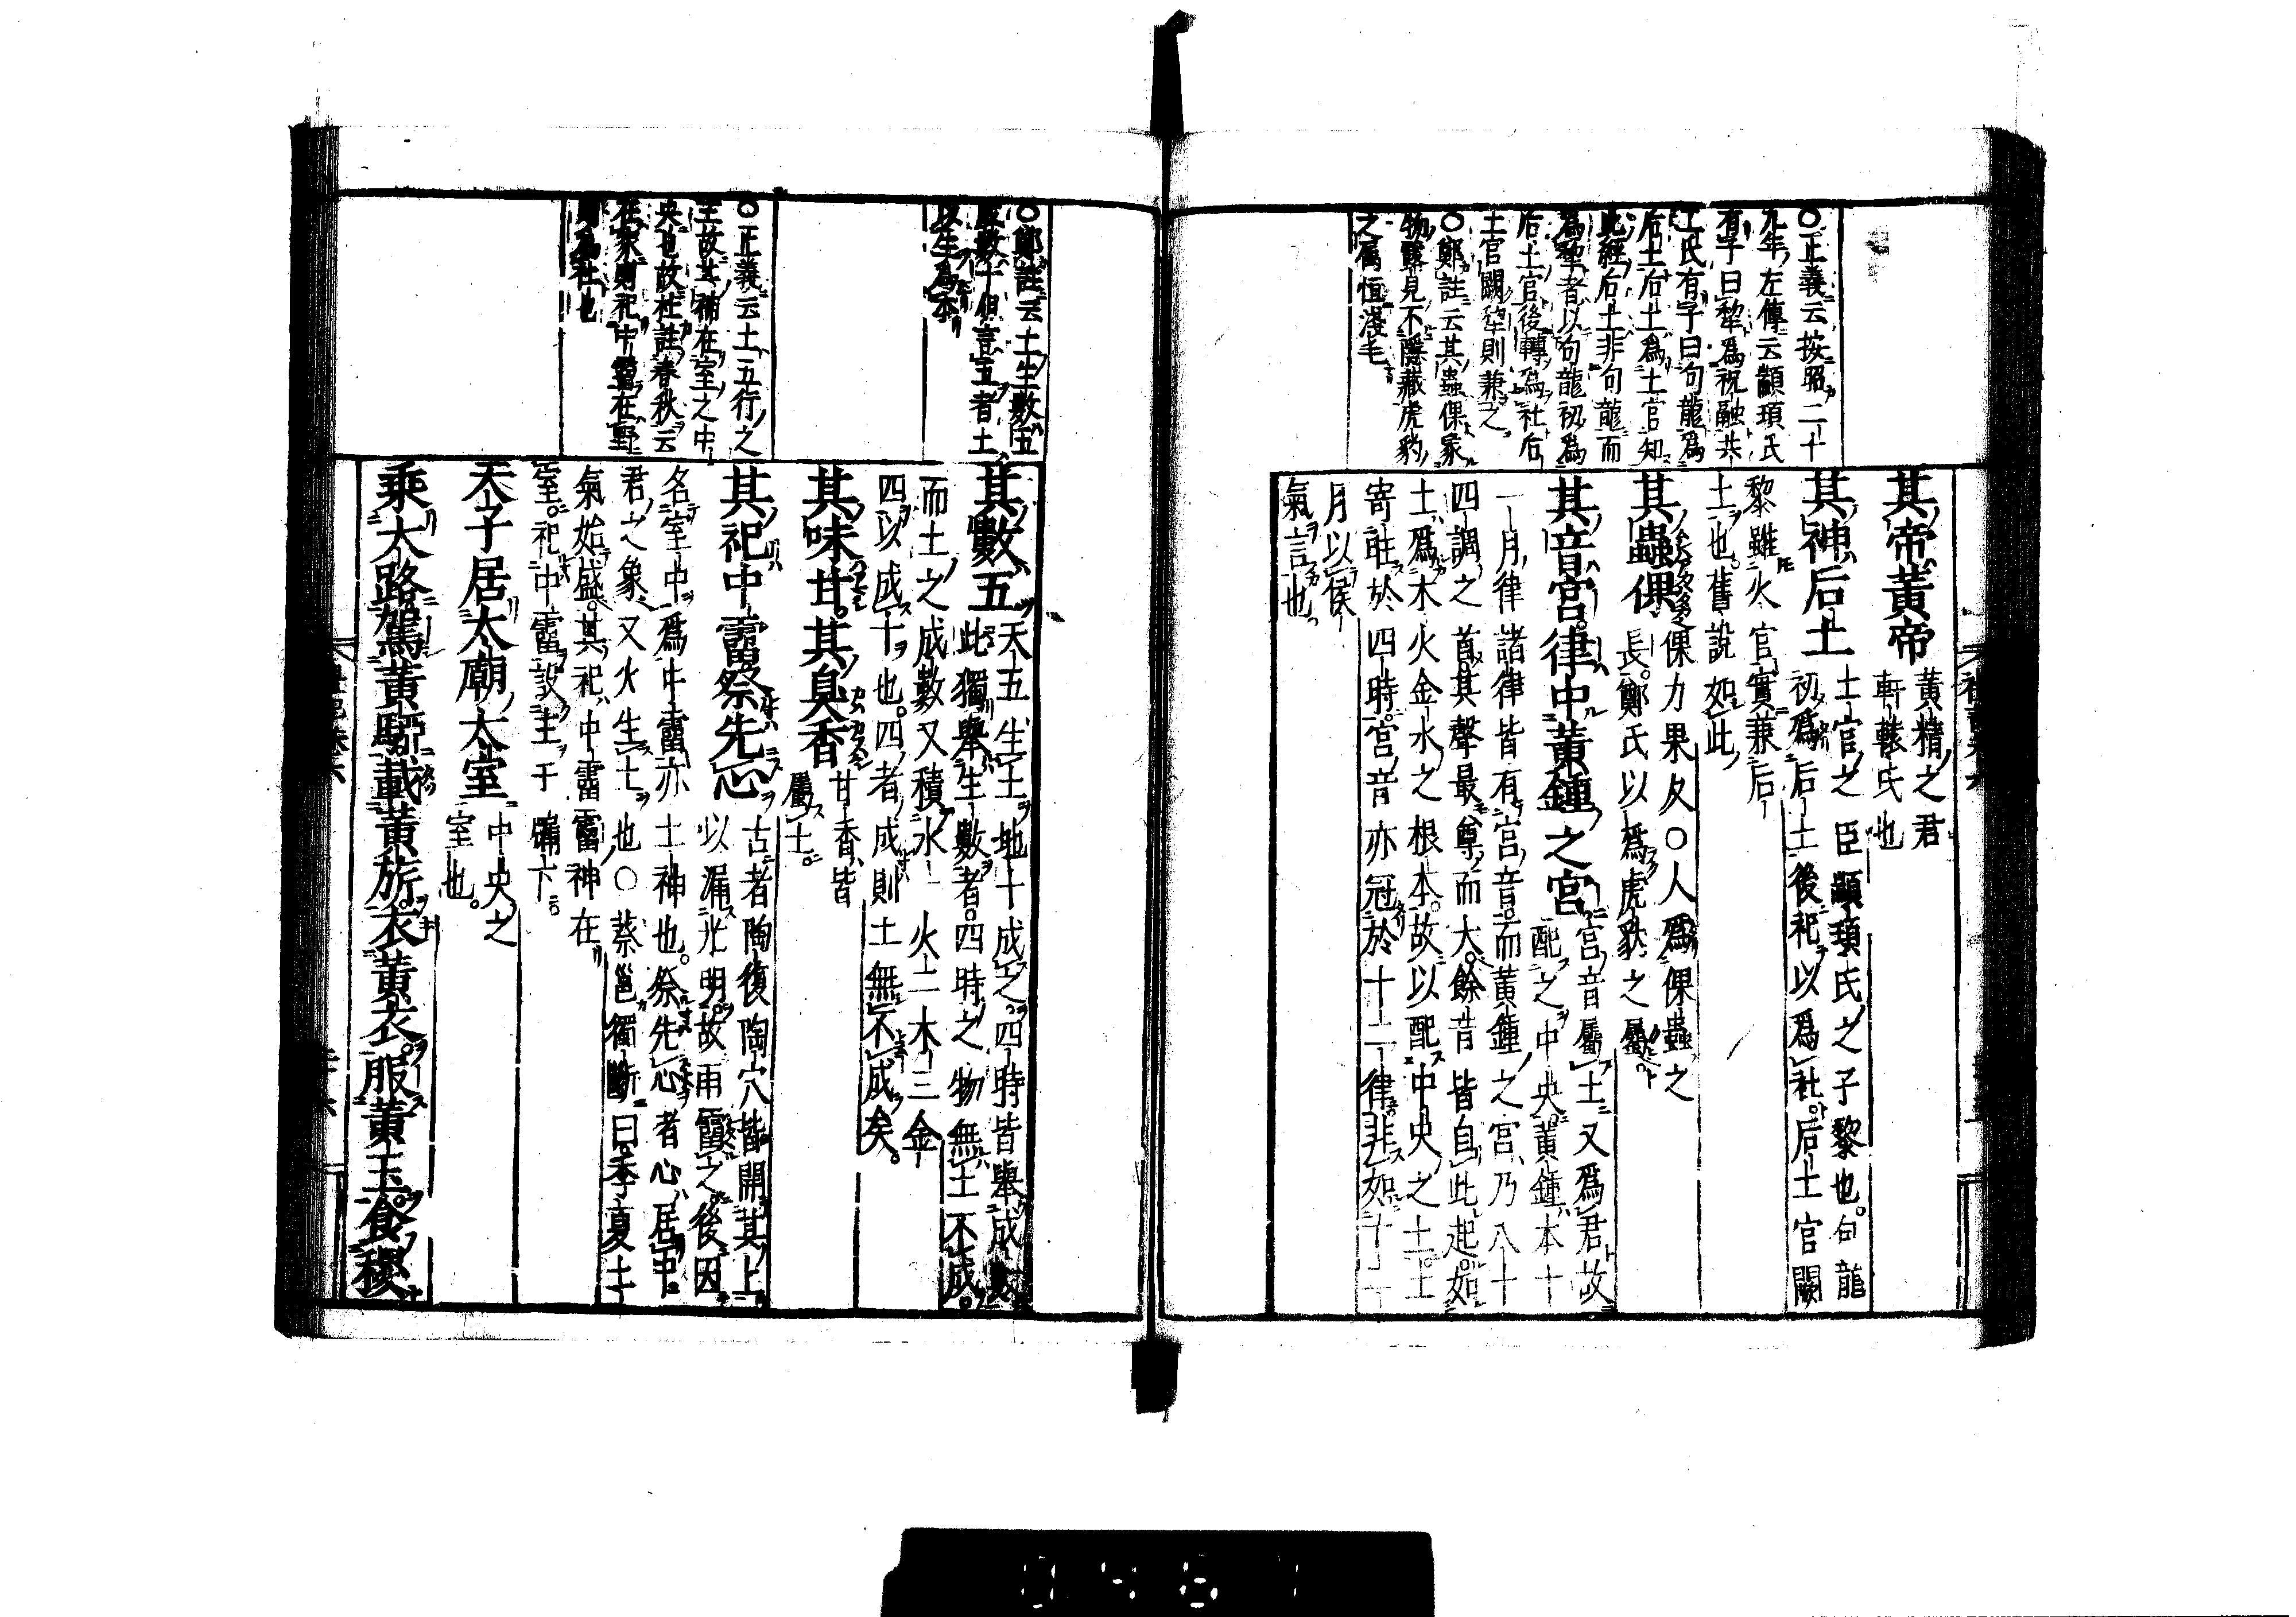 〇正義云按昭二十
九年左傳云顓頊氏
有子曰犂爲祝融共
工氏有子曰句龍爲
后土后土爲土官知
此經后土非句龍而
爲犂者以句龍初爲
后土官後轉爲社后
土官闕犂則兼之
〇鄭註云其蟲倮象
物露見不隱藏虎豹
之屬恒淺毛
其帝黃帝
黃精之君
軒轅氏也
其神后土
土官之臣顓頊氏之子黎也句龍
初爲后土後祀以爲社后土官闕
黎雖火官實兼后
土也舊說如此
其蟲倮
倮力果反〇人爲倮蟲之
長鄭氏以爲虎豹之屬
其音宮律中黃鍾之宮
宮音屬土又爲君故
配之中央黃鍾本十
一月律諸律皆有宮音而黃鍾之宮乃八十
四調之首其聲最尊而大餘音皆自此起如
土爲木火金水之根本故以配中央之土土
寄旺於四時宮音亦冠於十二律非如十二
月以候
氣言也
〇鄭註云土生數五
成數十但言五者土
以生爲本
〇正義云土五行之
主故其神在室之中
央也故杜註春秋云
在家則祀中霤在野
則爲社也
其數五
天五生土地十成之四時皆舉成數
此獨舉生數者四時之物無土不成
而土之成數又積水一火二木三金
四以成十也四者成則土無不成矣
其味甘其臭香
甘香皆
屬土
其祀中霤祭先心
古者陶復陶穴皆開其上
以漏光明故雨霤之後因
名室中爲中霤亦土神也祭先心者心居中
君之象又火生土也〇蔡邕獨斷曰季夏土
氣始盛其祀中霤霤神在
室祀中霤設主于牖下
天子居太廟太室
中央之
室也
乘大路駕黃騮載黃旂衣黃衣服黃玉食稷